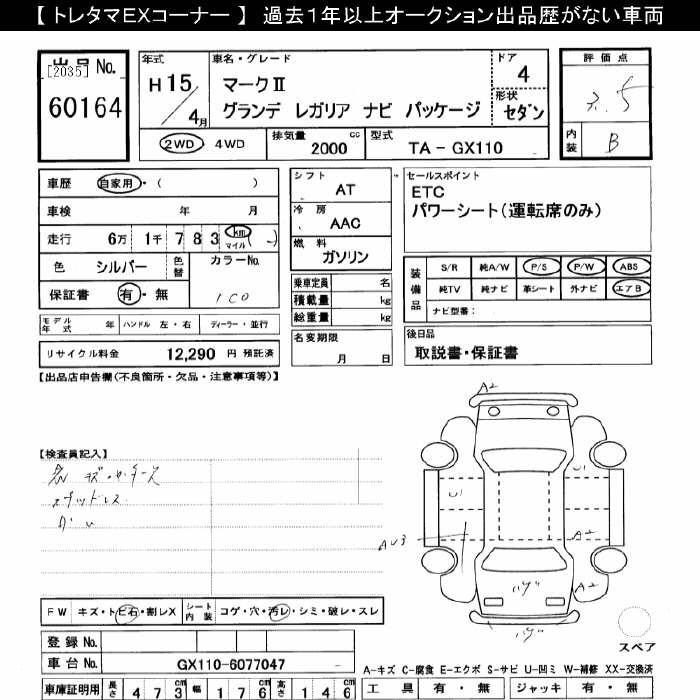 【 トレタマEXコーナー 】 過去1年以上オークション出品歴がない車両
出品 No.
[2035]
60164
年式
H 15 / 4月
車名・グレード
マークⅡ
グランデ レガリア ナビ パッケージ
ドア
4
形状
セダン
評価点
3.5
内装
B
2WD 4WD
排気量 2000 cc
型式 TA - GX110
車歴 自家用・( )
車検 年 月
走行 6万 1千 7 8 3 km マイル ( - )
色 シルバー 色替
カラーNo.
1C0
保証書 有・無
シフト AT
冷房 AAC
燃料 ガソリン
乗車定員 名
積載量 kg
総重量 kg
セールスポイント
ETC
パワーシート(運転席のみ)
装備品
S/R 純A/W P/S P/W ABS
純TV 純ナビ 革シート 外ナビ エアB
ナビ型番:
モデル年式 年 ハンドル 左・右 ディーラー・並行
名変期限
月 日
後日品
取説書・保証書
リサイクル料金 12,290 円 預託済
【出品店申告欄(不良箇所・欠品・注意事項等)】
【検査員記入】
スタッドレス
A2
U1
U1
AU3
A2
A2
FW キズ・トビ石・割レX
シート内装 コゲ・穴・汚レ・シミ・破レ・スレ
登録 No.
車台 No. GX110-6077047
スペア
A-キズ C-腐食 E-エクボ S-サビ U-凹ミ W-補修 XX-交換済
車庫証明用 長さ 4 7 3 cm 幅 1 7 6 cm 高さ 1 4 6 cm
工具 有・無 ジャッキ 有・無